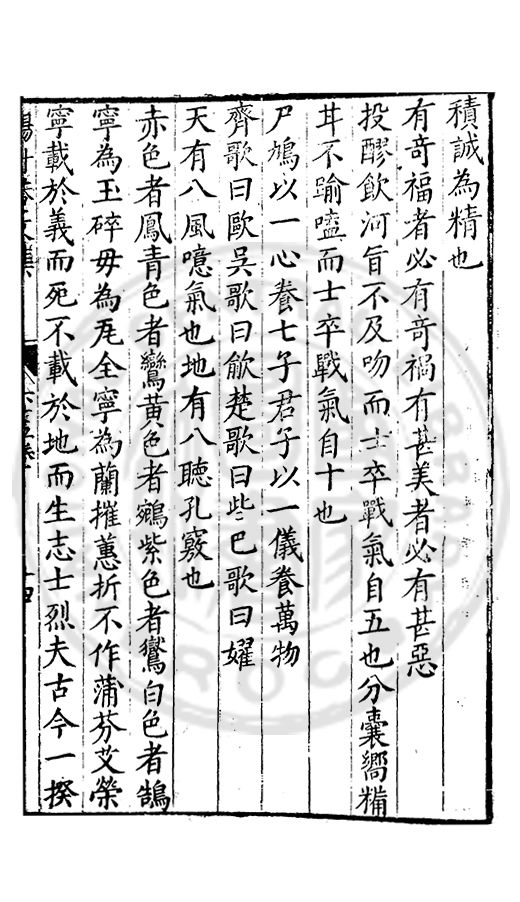 積誠為精也
有奇福者必有奇禍有甚美者必有甚惡
投醪飲河旨不及吻而士卒戰氣自五也分囊𩞄糒
甘不踰嗌而士卒戰氣自十也
尸鳩以一心養七子君子以一儀養萬物
齊歌曰歐吳歌曰歈楚歌曰些巴歌曰嬥
天有八風噫氣也地有八聽孔竅也
赤色者鳳青色者鸞黃色者鵷紫色者鸑白色者鵠
寧為玉碎毋為瓦全寧為蘭摧蕙折不作蒲芬艾榮
寧載於義而死不載於地而生志士烈夫古今一揆
十四